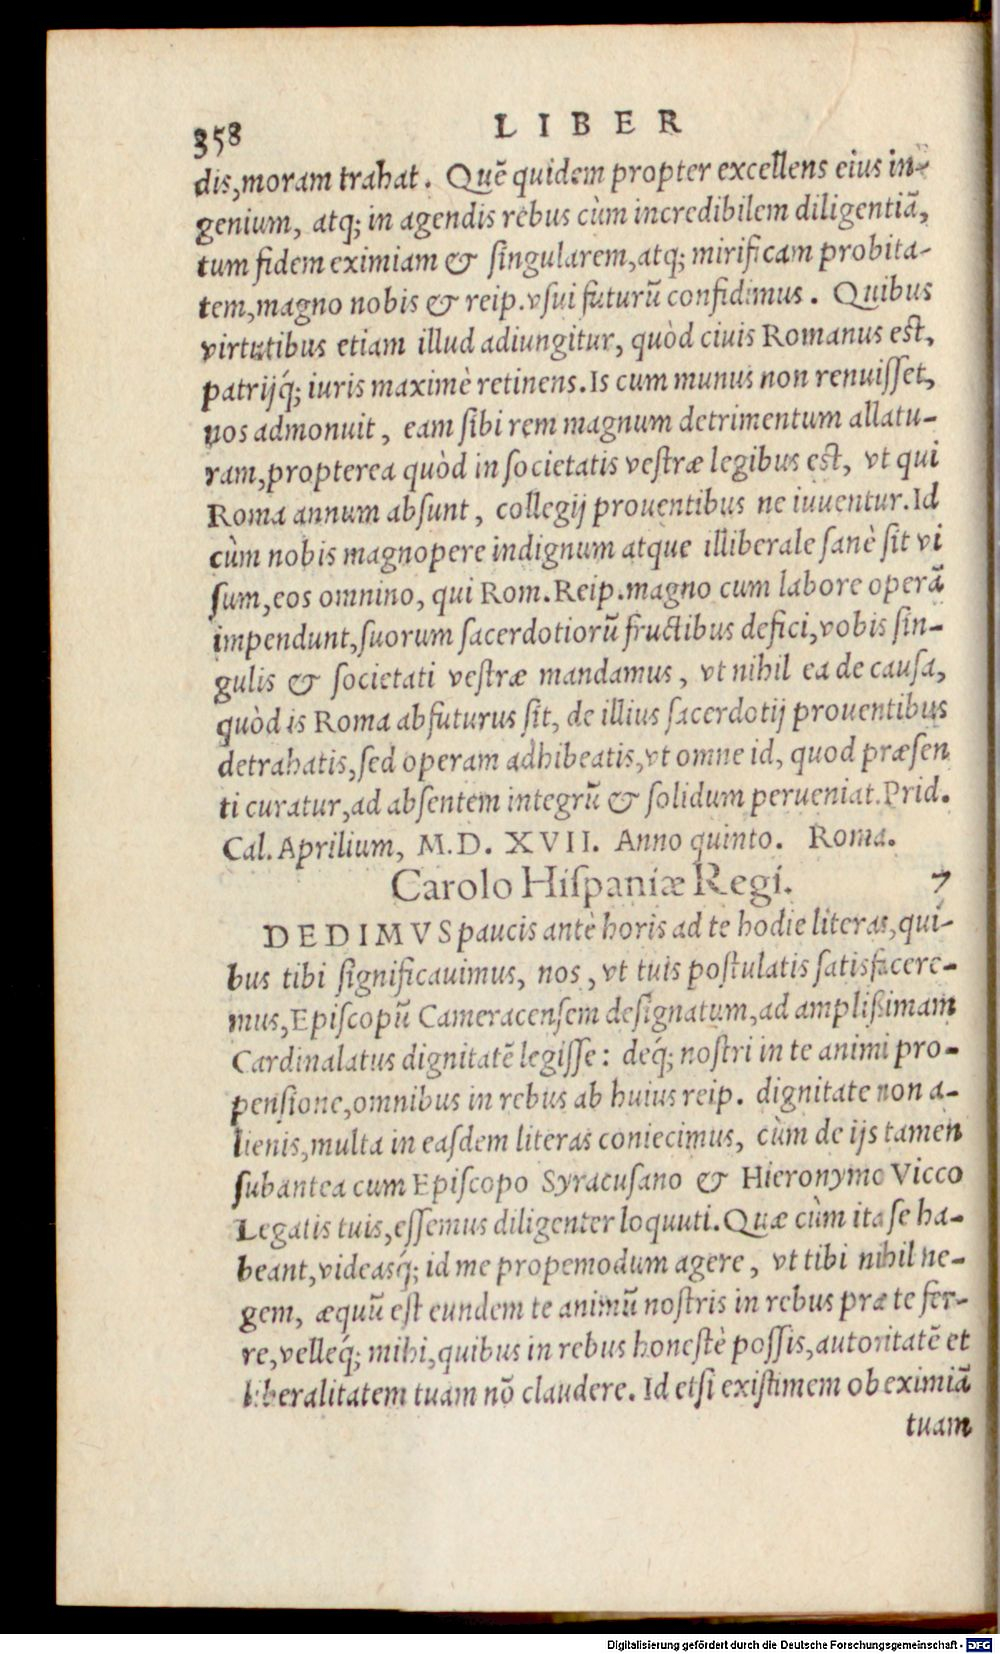 358 LIBER
dis, moram trahat. Quē quidem propter excellens eius in-
genium, atq; in agendis rebus cùm incredibilem diligentiā,
tum fidem eximiam & singularem, atq; mirificam probita-
tem, magno nobis & reip. vsui futurū confidimus. Quibus
virtutibus etiam illud adiungitur, quòd ciuis Romanus est,
patrijq́; iuris maximè retinens. Is cum munus non renuisset,
nos admonuit, eam sibi rem magnum detrimentum allatu-
ram, propterea quòd in societatis vestræ legibus est, vt qui
Roma annum absunt, collegij prouentibus ne iuuentur. Id
cùm nobis magnopere indignum atque illiberale sanè sit vi
sum, eos omnino, qui Rom. Reip. magno cum labore operā
impendunt, suorum sacerdotiorū fructibus defici, vobis sin-
gulis & societati vestræ mandamus, vt nihil ea de causa,
quòd is Roma abfuturus sit, de illius sacerdotij prouentibus
detrahatis, sed operam adhibeatis, vt omne id, quod præsen
ti curatur, ad absentem integrū & solidum perueniat. Prid.
Cal. Aprilium, M.D. XVII. Anno quinto. Roma.
Carolo Hispaniæ Regi. 7
DEDIMVS paucis antè horis ad te hodie literas, qui-
bus tibi significauimus, nos, vt tuis postulatis satisfacere-
mus, Episcopū Cameracensem designatum, ad amplißimam
Cardinalatus dignitatē legisse: deq́; nostri in te animi pro-
pensione, omnibus in rebus ab huius reip. dignitate non a-
lienis, multa in easdem literas coniecimus, cùm de ijs tamen
subantea cum Episcopo Syracusano & Hieronymo Vicco
Legatis tuis, essemus diligenter loquuti. Quæ cùm ita se ha-
beant, videasq́; id me propemodum agere, vt tibi nihil ne-
gem, æquū est eundem te animū nostris in rebus præ te fer-
re, velleq́; mihi, quibus in rebus honestè possis, autoritatē et
liberalitatem tuam nō claudere. Id etsi existimem ob eximiā
tuam
Digitalisierung gefördert durch die Deutsche Forschungsgemeinschaft - DFG